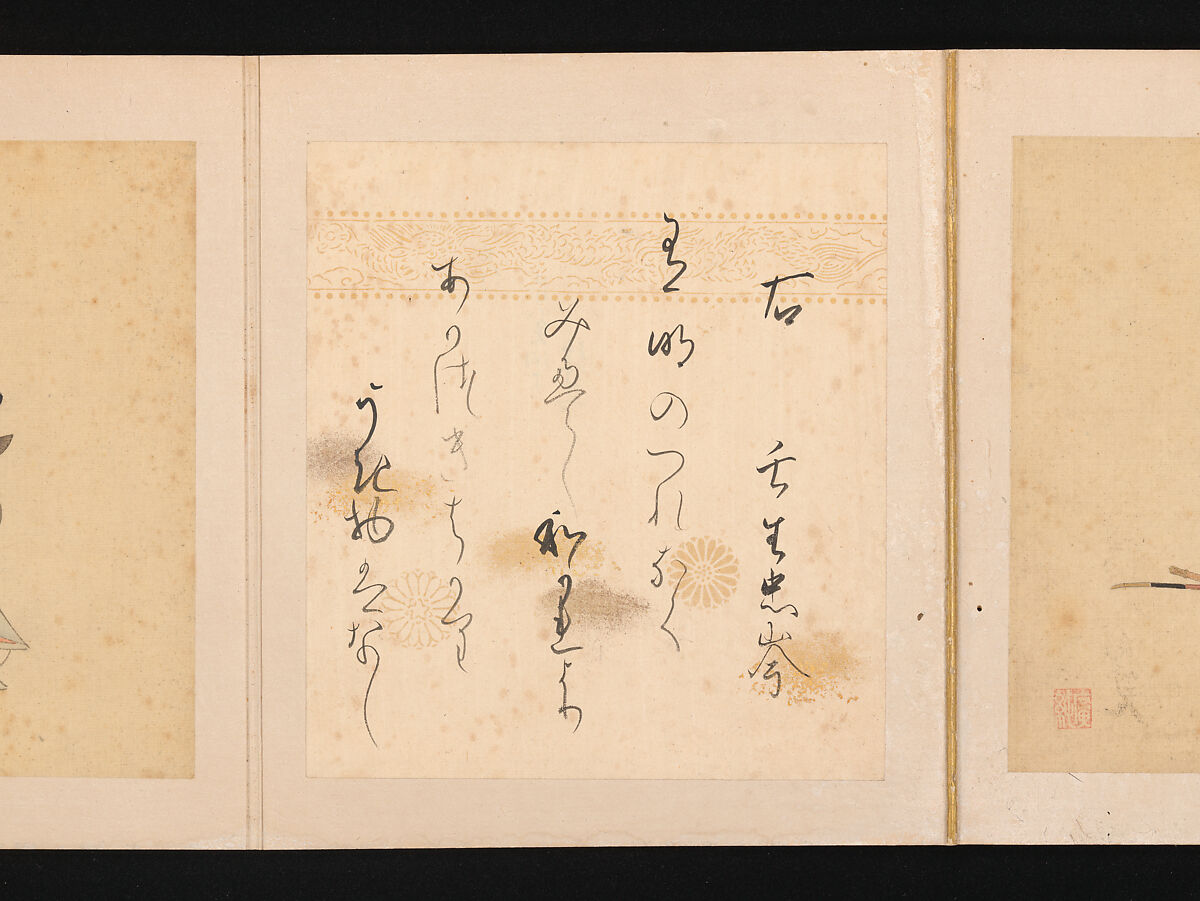 右　壬生忠岑
有明のつれなく
みえしわかれより
あかつきはかり
うき物はなし